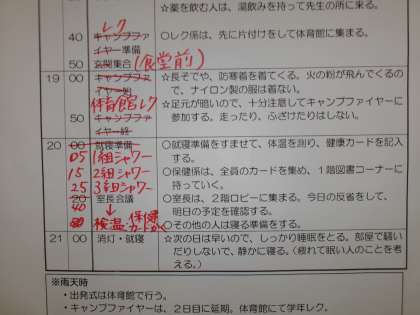 ☆薬を飲む人は、湯飲みを持って先生の所に来る。
レク
40 キャンプファイヤー準備
○レク係は、先に片付けをして体育館に集まる。
50 玄関集合 (食堂前)
19 00 キャンプファイヤー始
☆長そでや、防寒着を着てくる。火の粉が飛んでくるので、ナイロン製の服は着ない。
体育館レク
☆足元が暗いので、十分注意してキャンプファイヤーに参加する。走ったり、ふざけたりはしない。
50 キャンプファイヤー終
20 00 就寝準備
○就寝準備をすませて、体温を測り、健康カードを記入する。
05 1組シャワー
15 2組シャワー
○保健係は、全員のカードを集め、1階図書コーナーに持っていく。
25 3組シャワー
20 室長会議
○室長は、2階ロビーに集まる。今日の反省をして、明日の予定を確認する。
40
↓
検温・保健カードかく
○その他の人は寝る準備をする。
21 00 消灯・就寝
☆次の日は早いので、しっかり睡眠をとる。部屋で騒いだりしないで、静かに寝る。(疲れて眠い人のことを考える。)
※雨天時
・出発式は体育館で行う。
・キャンプファイヤーは、2日目に延期。体育館にて学年レク。